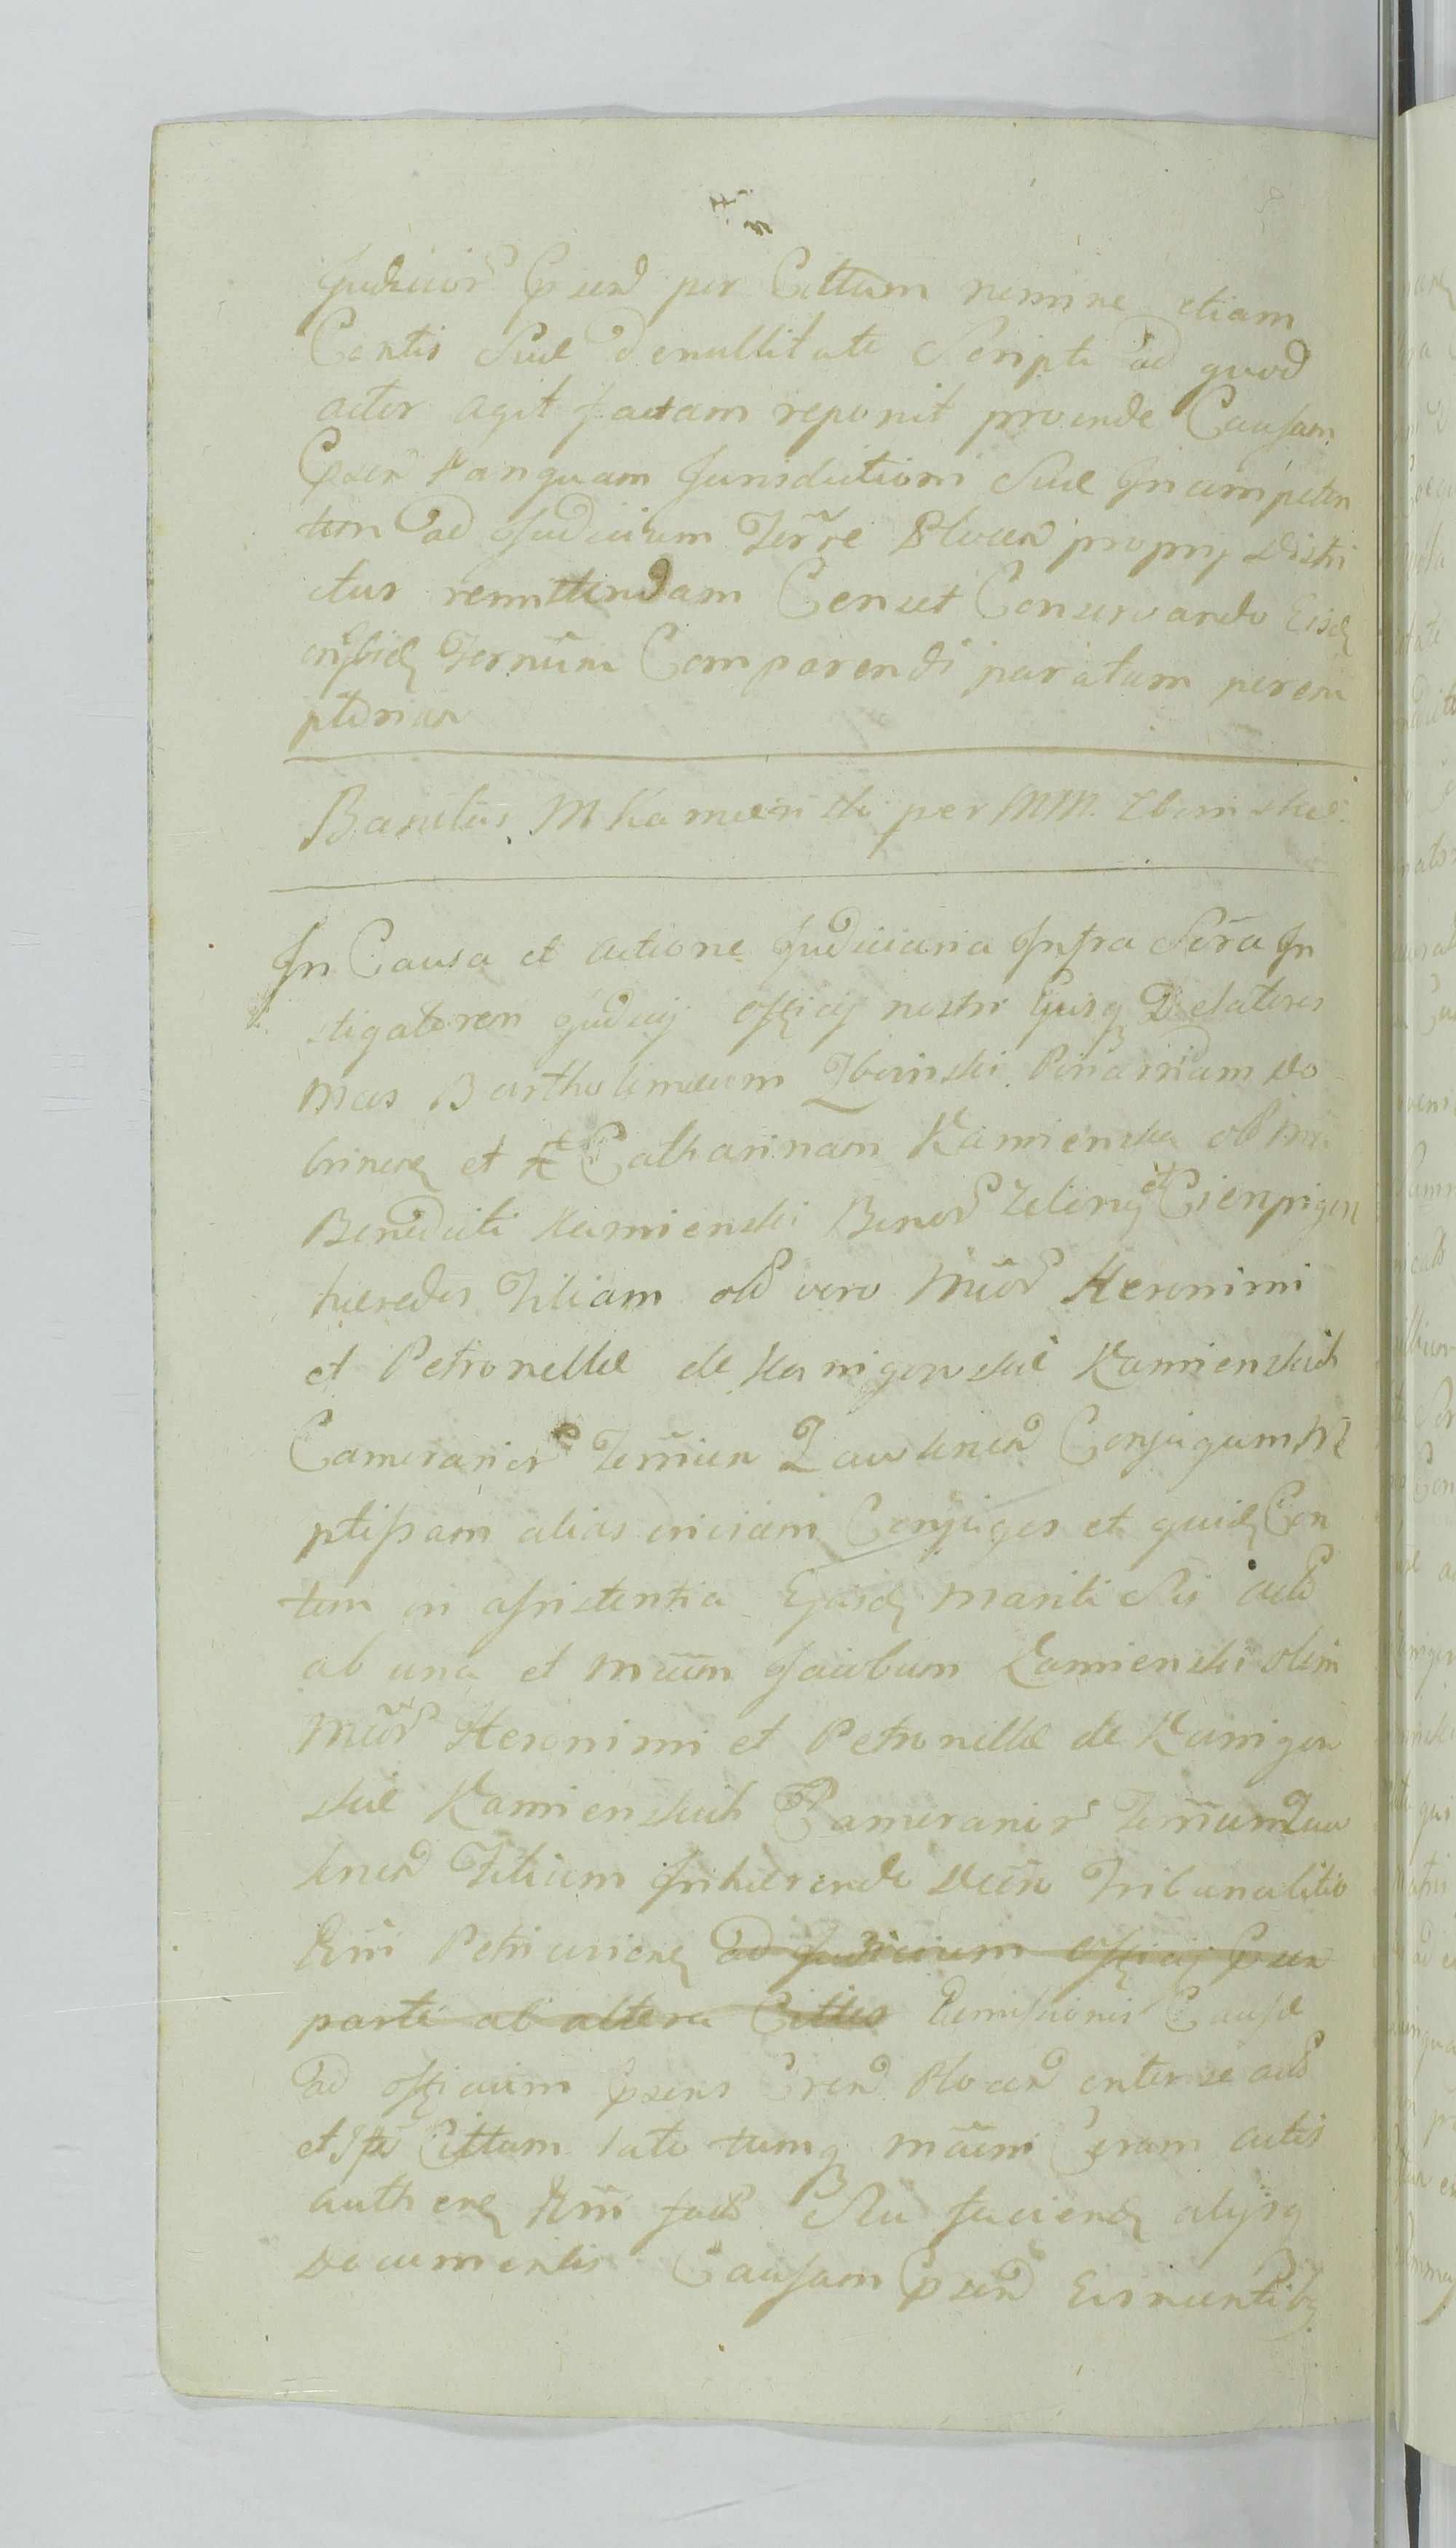 Judicior Psen per Cittum nomine etiam
Contis Suae de nullitate Scripti ad quod
actor agit factam reponit proinde Causam
Psen tanquam Jurisdictioni Suae Incumpeten
tem ad Judicium Terre Plocen proprij Distri
ctus remittendam Censet Conservando Eisdq
inibidq Termum Comparendi paratum perem
ptorium
Banitus M Kamienski per MM. Zboinskie
In Causa et actione Judiciaria Infra Scra In
stigatorem Judicij Officij nostri Ejusq Delatores
Mcos Bartholomeum Zboinski Pincernam Do
brinen et Catharinam Kamienska olim M
Benedicti Kamienski Bonor Zelony et Cienpigen
haeredis Filiam olim vero Mcor Heronimi
et Petronellae de Karnigowskie Kamienskich
Camerarior Terrien Zawkrnen Conjugum Ne
ptissam alias Conjuges et quidq Con
tem in assistentia Ejusdq Mariti Sui act
ab una et Mcum Jacobum Kamienski olim
Mcor Heronimi et Petronellae de Karnigow
skie Kamienskich Camerarior Terrium Zaw
krnen Filium Inhaerendo Decto Tribunalitio
Rni Petricovienq ad Judicium Officij Psen
parte ab altera Cittos Remissionis Causae
ad Officium Psens Cren Plocen inter se act
et Cittum lato tumq Mcum Coram actis
authenq Rni fact Seu faciendq alijsq
Documentis Causam Psen